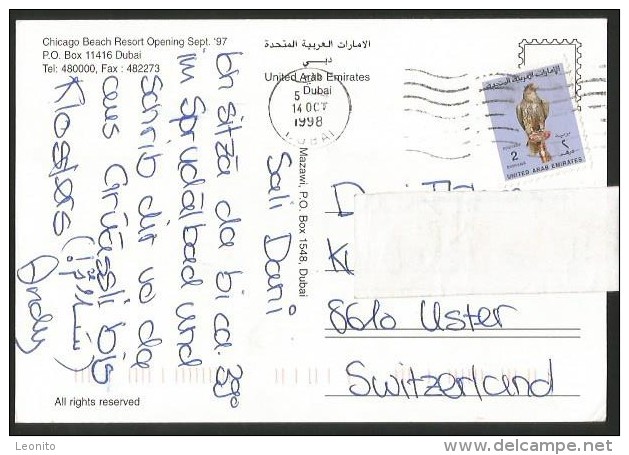 Chicago Beach Resort Opening Sept. '97
P.O. Box 11416 Dubai
Tel: 480000, Fax : 482273
الامارات العربية المتحدة
دبـــي
United Arab Emirates
Dubai
5
14 OCT
1998
DUBAI
الامارات العربية المتحدة
2
UNITED ARAB EMIRATES
Mazawi, P.O. Box 1548, Dubai
Sali Dani
bh sitza da bi ca. 39°
im Sprudälbad und
schrib dir vo da
aus Grüessli bis
Klosters
Andy
D
K
8610 Uster
Switzerland
All rights reserved
Leonito
www.delcampe.net